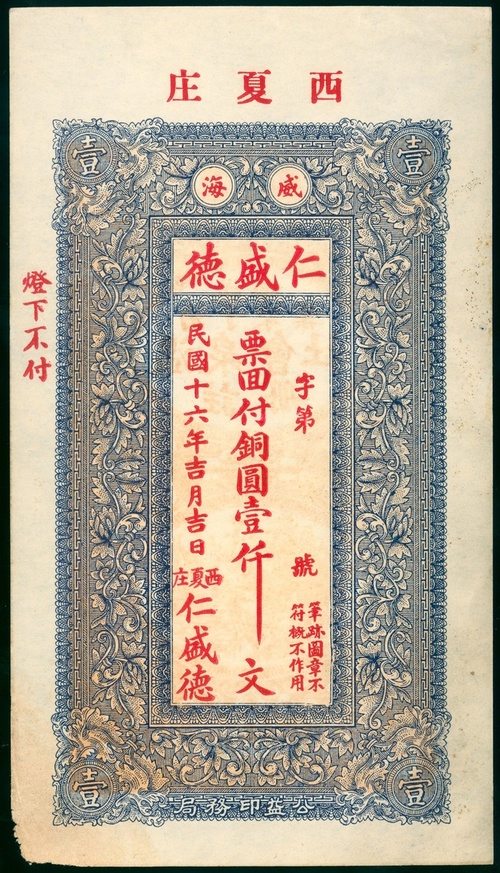 西夏庄
壹 壹
威海
仁盛德
字第 號
筆跡圖章不
符概不作用
票面付銅圓壹仟文
民國十六年吉月吉日
西夏庄
仁盛德
燈下不付
壹 壹
公益印務局